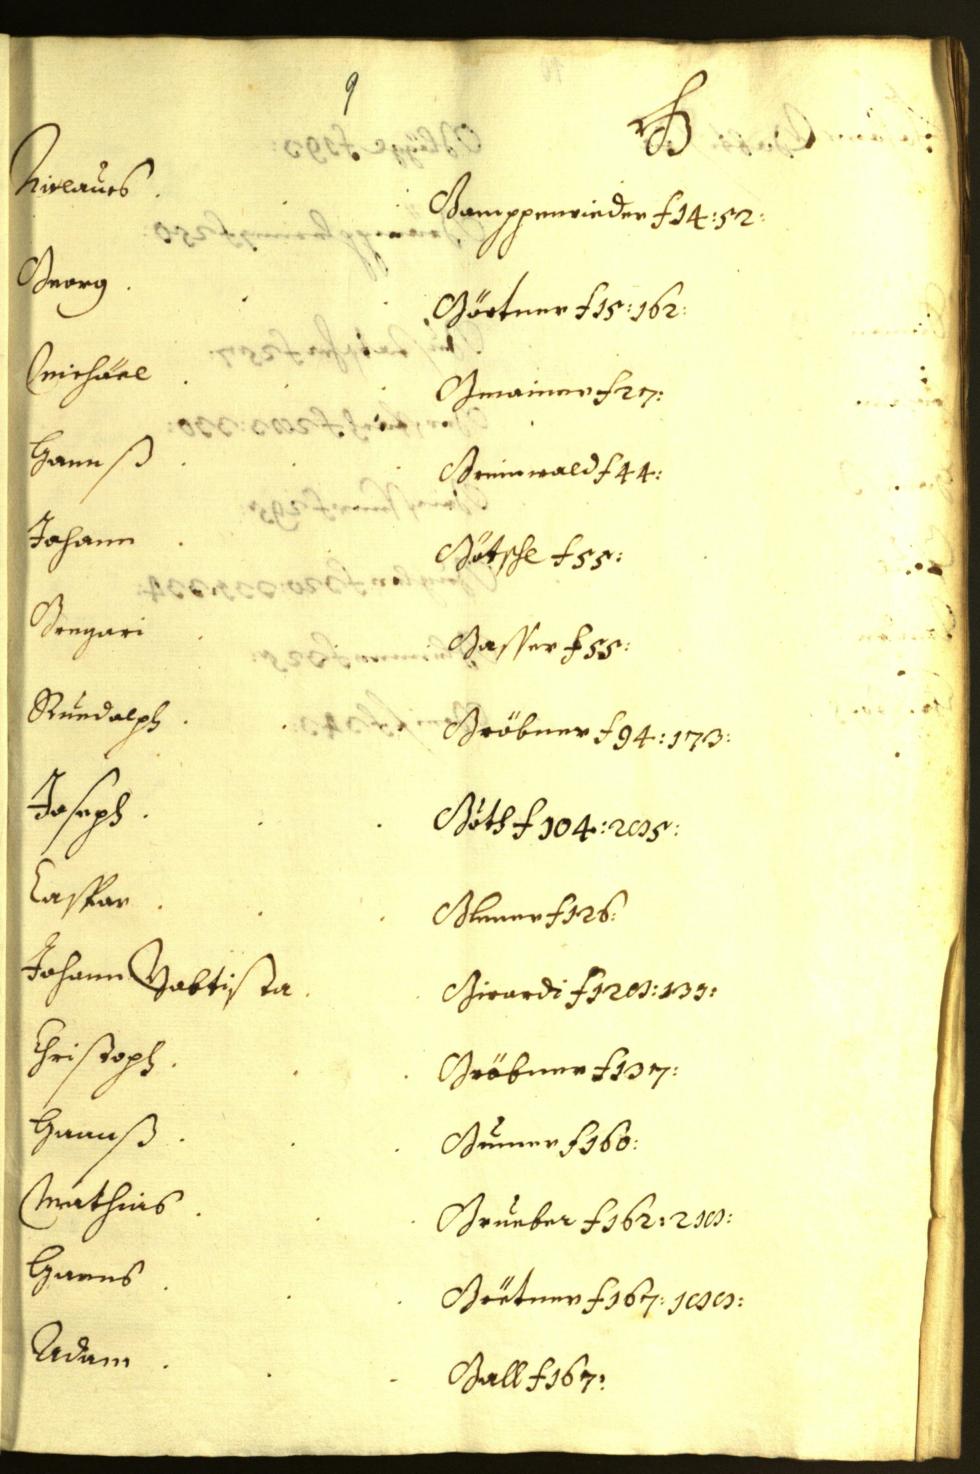 9
G
Niclaus . . . Gamppenrieder f 14: 52:
Georg . . . Görtner f 15: 162:
Michäel . . . Gmainer f 27:
Hannß . . . Grienwald f 44:
Johann . Götschl f 55:
Gregori . Gasser f 55:
Ruedolph . . . Gröbner f 94: 173:
Joseph . . . Göth f 104: 205:
Caspar . . . f 126:
Johann Babtista . . Girardi f 128: 133:
Christoph . . . Gröbner f 137:
Hannß . . . f 160:
Mathias . . . Grueber f 162: 218:
Hanns . . . f 167: 188:
Adam . . . Gall f 167: